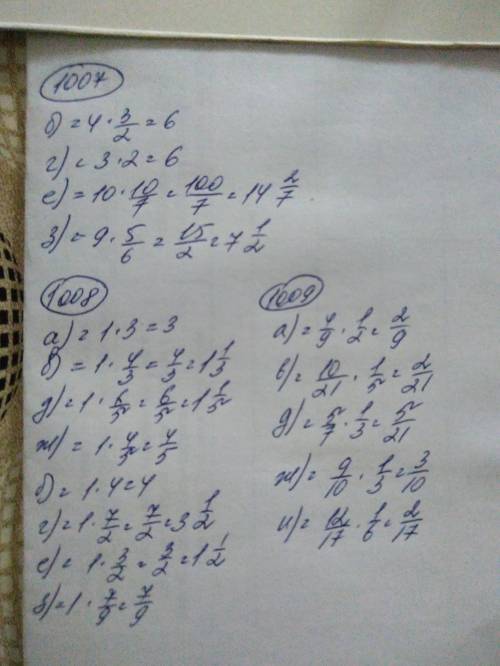 1007
б) = 4 · 3/2 = 6
г) = 3 · 2 = 6
е) = 10 · 10/7 = 100/7 = 14 2/7
з) = 9 · 5/6 = 15/2 = 7 1/2
1008
а) = 1 · 3 = 3
в) = 1 · 4/3 = 4/3 = 1 1/3
д) = 1 · 6/5 = 6/5 = 1 1/5
ж) = 1 · 4/5 = 4/5
б) = 1 · 4 = 4
г) = 1 · 7/2 = 7/2 = 3 1/2
е) = 1 · 3/2 = 3/2 = 1 1/2
з) = 1 · 7/9 = 7/9
1009
а) = 4/9 · 1/2 = 2/9
в) = 10/21 · 1/5 = 2/21
д) = 5/7 · 1/3 = 5/21
ж) = 9/10 · 1/3 = 3/10
и) = 12/17 · 1/6 = 2/17